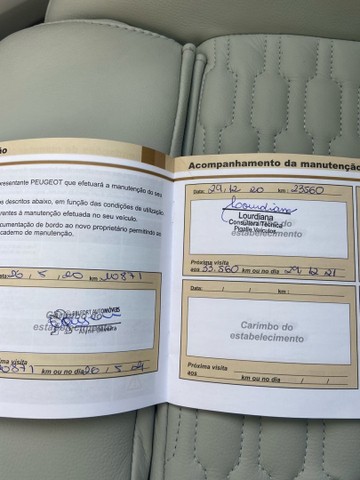 ão
presentante PEUGEOT que efetuará a manutenção do seu
os descritos abaixo, em função das condições de utilização
erentes à manutenção efetuada no seu veículo.
cumentação de bordo ao novo proprietário permitindo ao
caderno de manutenção.
26 / 5 / 20 km 10871
AUTOMÓVEIS
estabelecimento
ima visita
km ou no dia 26 / 5 /
Acompanhamento da manutenção
Data: 29 / 12 / 20 km: 23560
Lourdiana
Lourdiana
Consultora Técnica
Pigalle Veículos
estabelecimento
Próxima visita
aos 33.560 km ou no dia 29 / 12 / 21
Data: / / km:
Carimbo do
estabelecimento
Próxima visita
aos km ou no dia / /